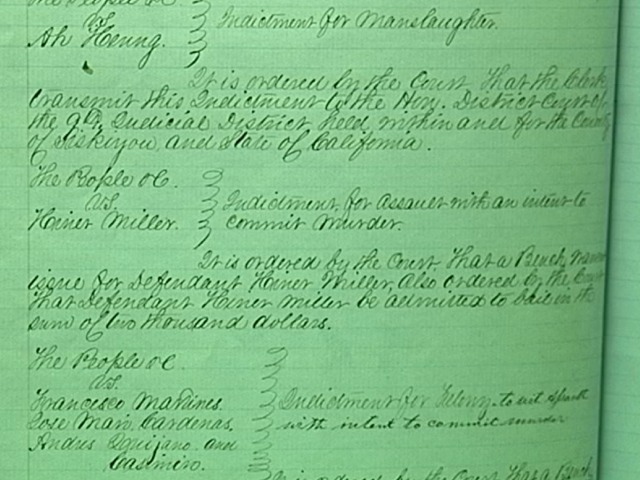 The People &c.
vs.
Ah Heung.
Indictment for Manslaughter.
It is ordered by the Court That the Clerk
transmit this Indictment to the Hon. District Court of
the 9th Judicial District held within and for the County
of Siskiyou and State of California.
The People &c.
vs.
Heiner Miller.
Indictment for Assault with an intent to
commit Murder.
It is ordered by the Court That a Bench
issue for Defendant Heiner Miller, also ordered by the Court
that Defendant Heiner Miller be admitted to bail in the
sum of two thousand dollars.
The People &c.
vs.
Francisco Martines.
Jose Mari Cardenas.
Andres Quijano and
Casimiro.
Indictment for Felony to wit
with intent to commit murder
It is ordered by the Court That a Bench